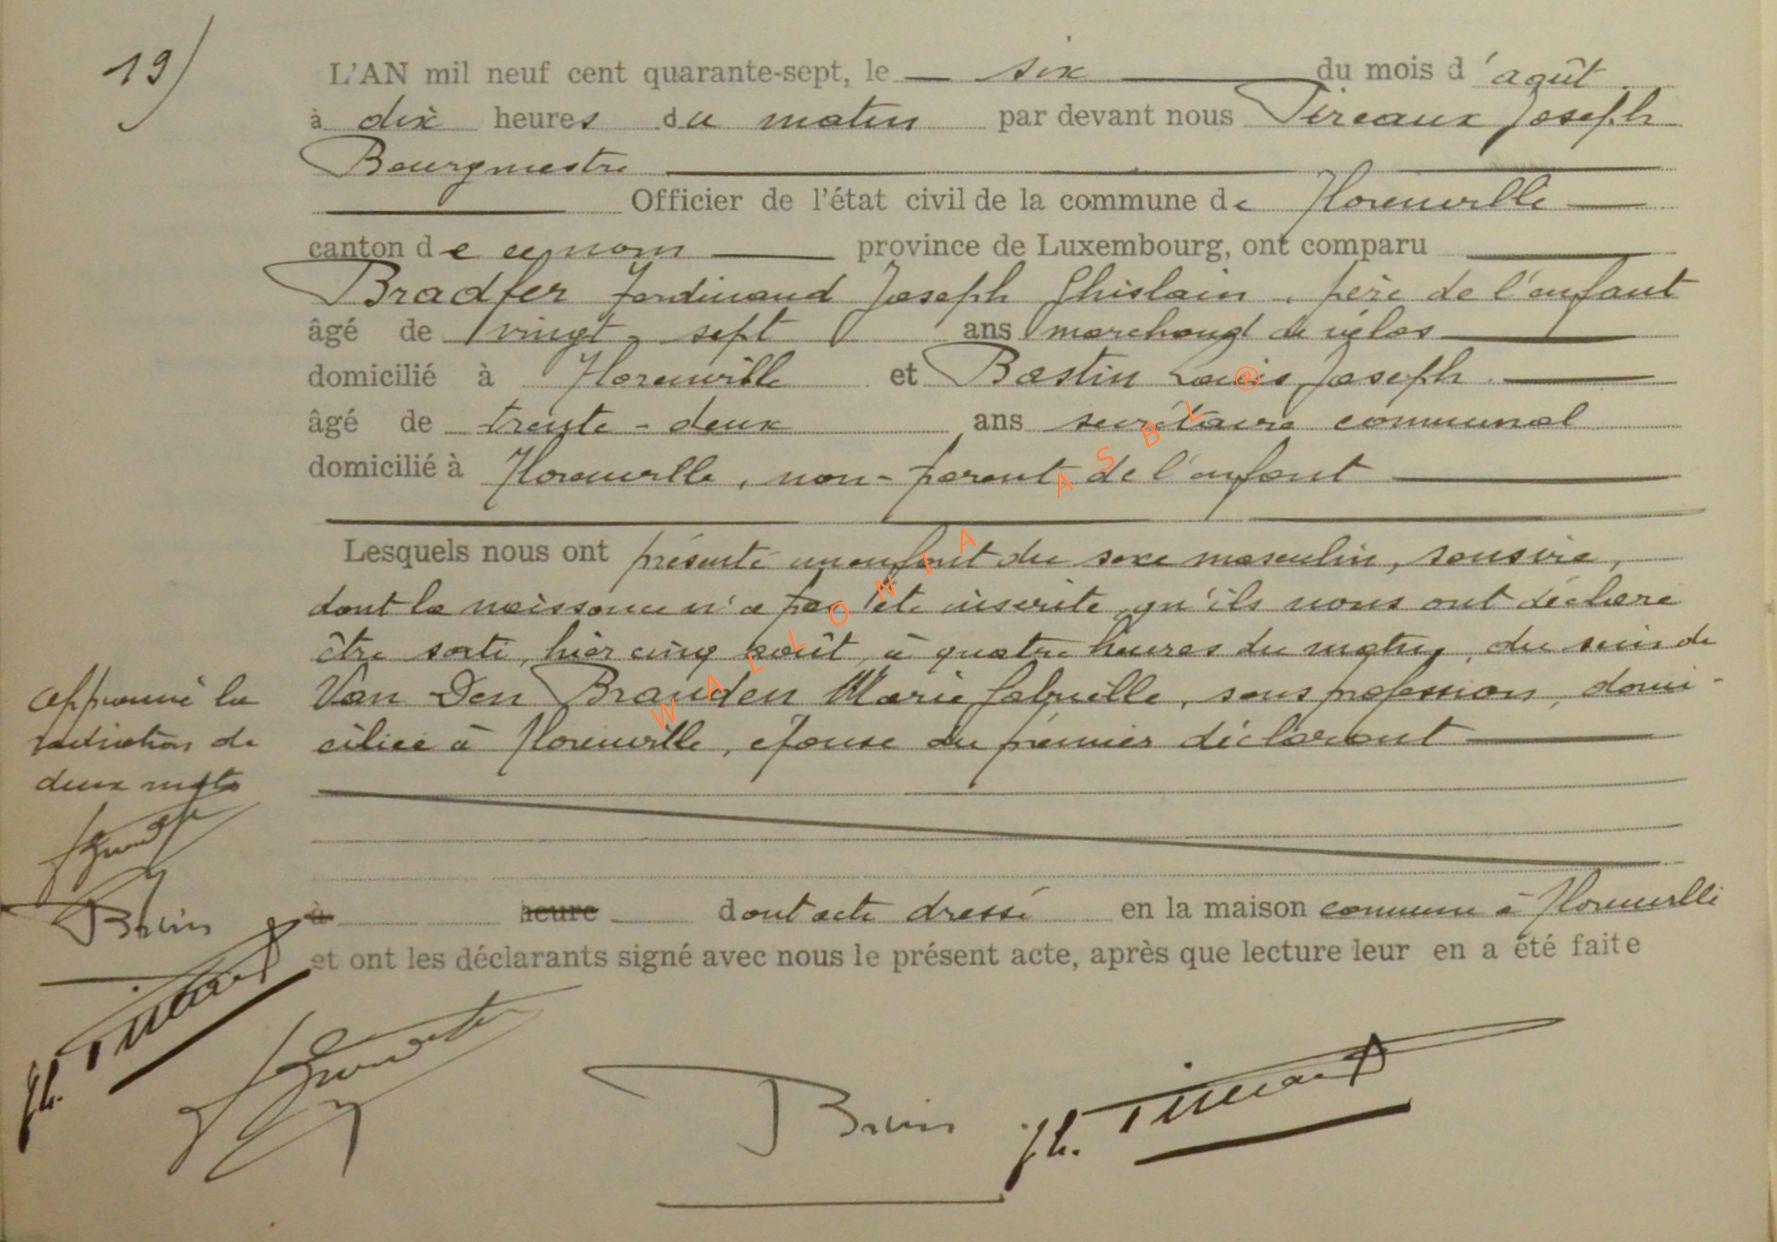 19)
L'AN mil neuf cent quarante-sept, le six du mois d'août
à dix heures du matin par devant nous Pireaux Joseph
Bourgmestre
Officier de l'état civil de la commune de Florenville
canton de ce nom province de Luxembourg, ont comparu
Bradfer Ferdinand Joseph Ghislain, père de l'enfant
âgé de vingt-sept ans marchand de vélos
domicilié à Florenville et Bastin Louis Joseph
âgé de trente-deux ans secrétaire communal
domicilié à Florenville, non-parent de l'enfant
Lesquels nous ont présenté un enfant du sexe masculin, sans vie,
dont la naissance n'a pas été inscrite, qu'ils nous ont déclaré
être sorti, hier cinq août, à quatre heures du matin, du sein de
Van Den Branden Marie Gabrielle, sans profession, domi-
ciliée à Florenville, épouse du premier déclarant
approuvé la
radiation de
deux mots
à heure dont acte dressé en la maison commune à Florenville
et ont les déclarants signé avec nous le présent acte, après que lecture leur en a été faite
WALLONIA ASBL ®